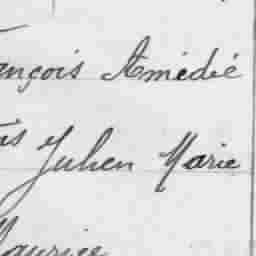 ançois Amédié
is Julien Marie
Maurice